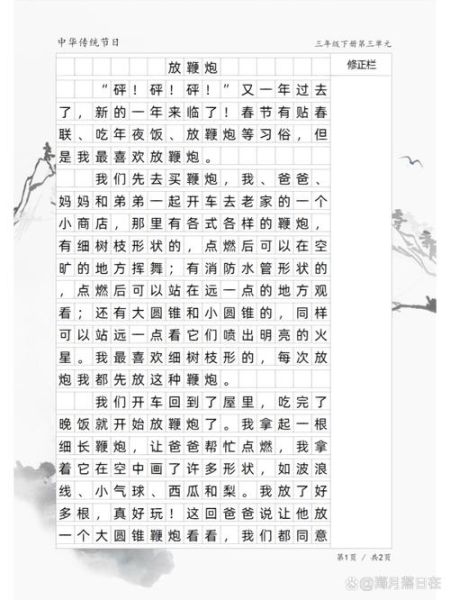 中华传统节日
三年级下册第三单元
放鞭炮
修正栏
“砰！砰！砰！”又一年过去
了，新的一年来临了！春节有贴春
联、吃年夜饭、放鞭炮等习俗，但
是我最喜欢放鞭炮。
我们先去买鞭炮，我、爸爸、
妈妈和弟弟一起开车去老家的一个
小商店，那里有各式各样的鞭炮，
有细树枝形状的，点燃后可以在空
旷的地方挥舞；有消防水管形状的
，点燃后可以站在远一点的地方观
看；还有大圆锥和小圆锥的，同样
可以站远一点看它们喷出明亮的火
星。我最喜欢细树枝形的，每次放
炮我都先放这种鞭炮。
我们开车回到了屋里，吃完了
晚饭就开始放鞭炮了。我拿起一根
细长鞭炮，让爸爸帮忙点燃，我拿
着它在空中画了许多形状，如波浪
线、小气球、西瓜和梨。我放了好
多根，真好玩！这回爸爸说让他放
一个大圆锥鞭炮看看，我们都同意
第1页 / 共2页